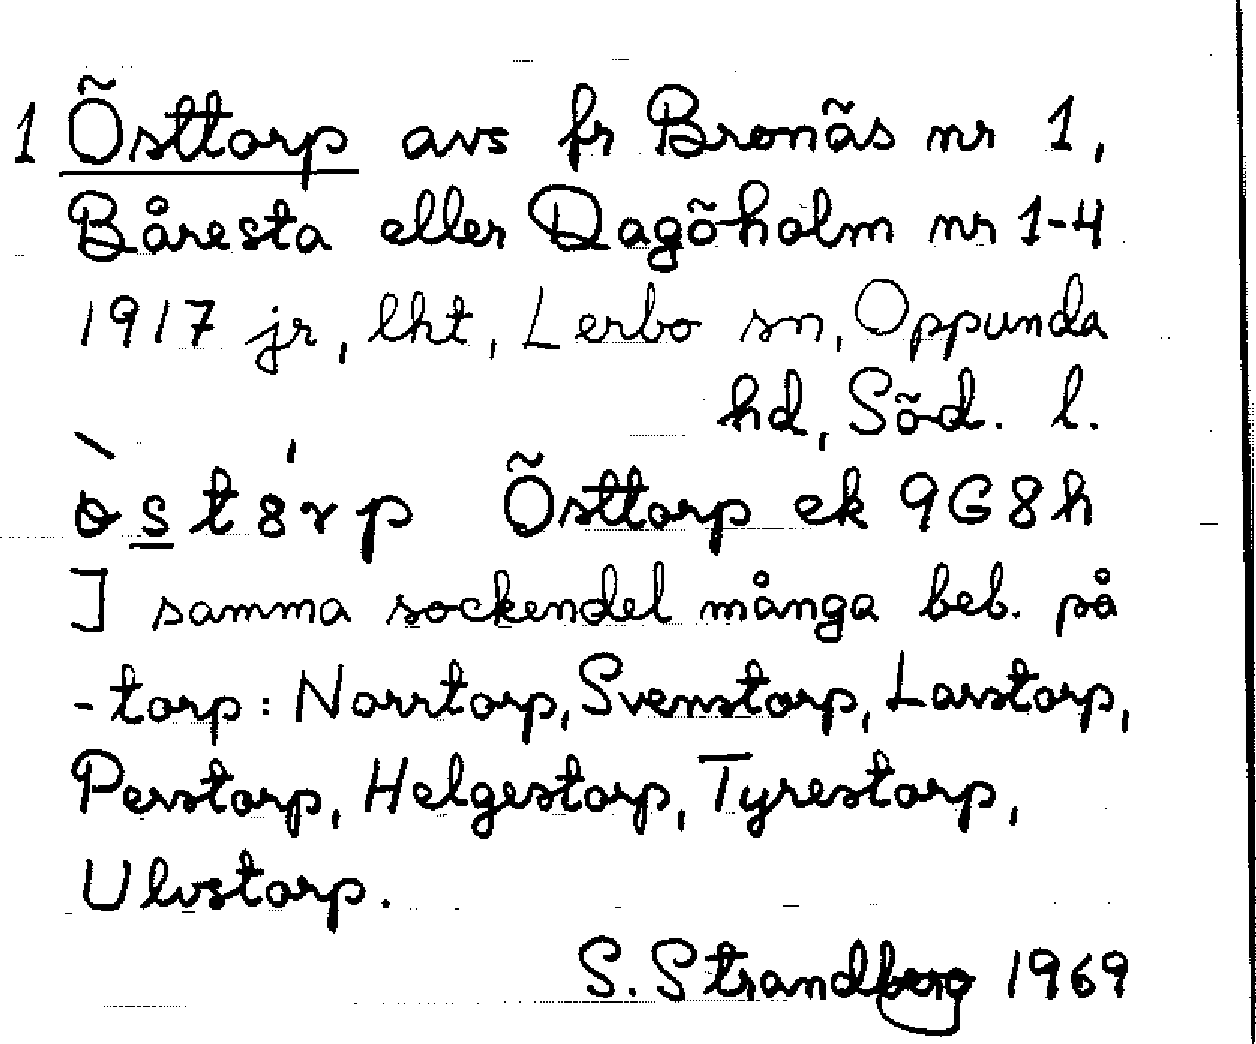 1 Östtorp avs fr Bronäs nr 1,
Båresta eller Dagöholm nr 1-4
1917 jr, lht, Lerbo sn, Oppunda
hd, Söd. l.
Östtorp ek 9G8h
I samma sockendel många beb. på
-torp: Norrtorp, Svenstorp, Larstorp,
Perstorp, Helgestorp, Tyrestorp,
Ulvstorp.
S. Strandberg 1969